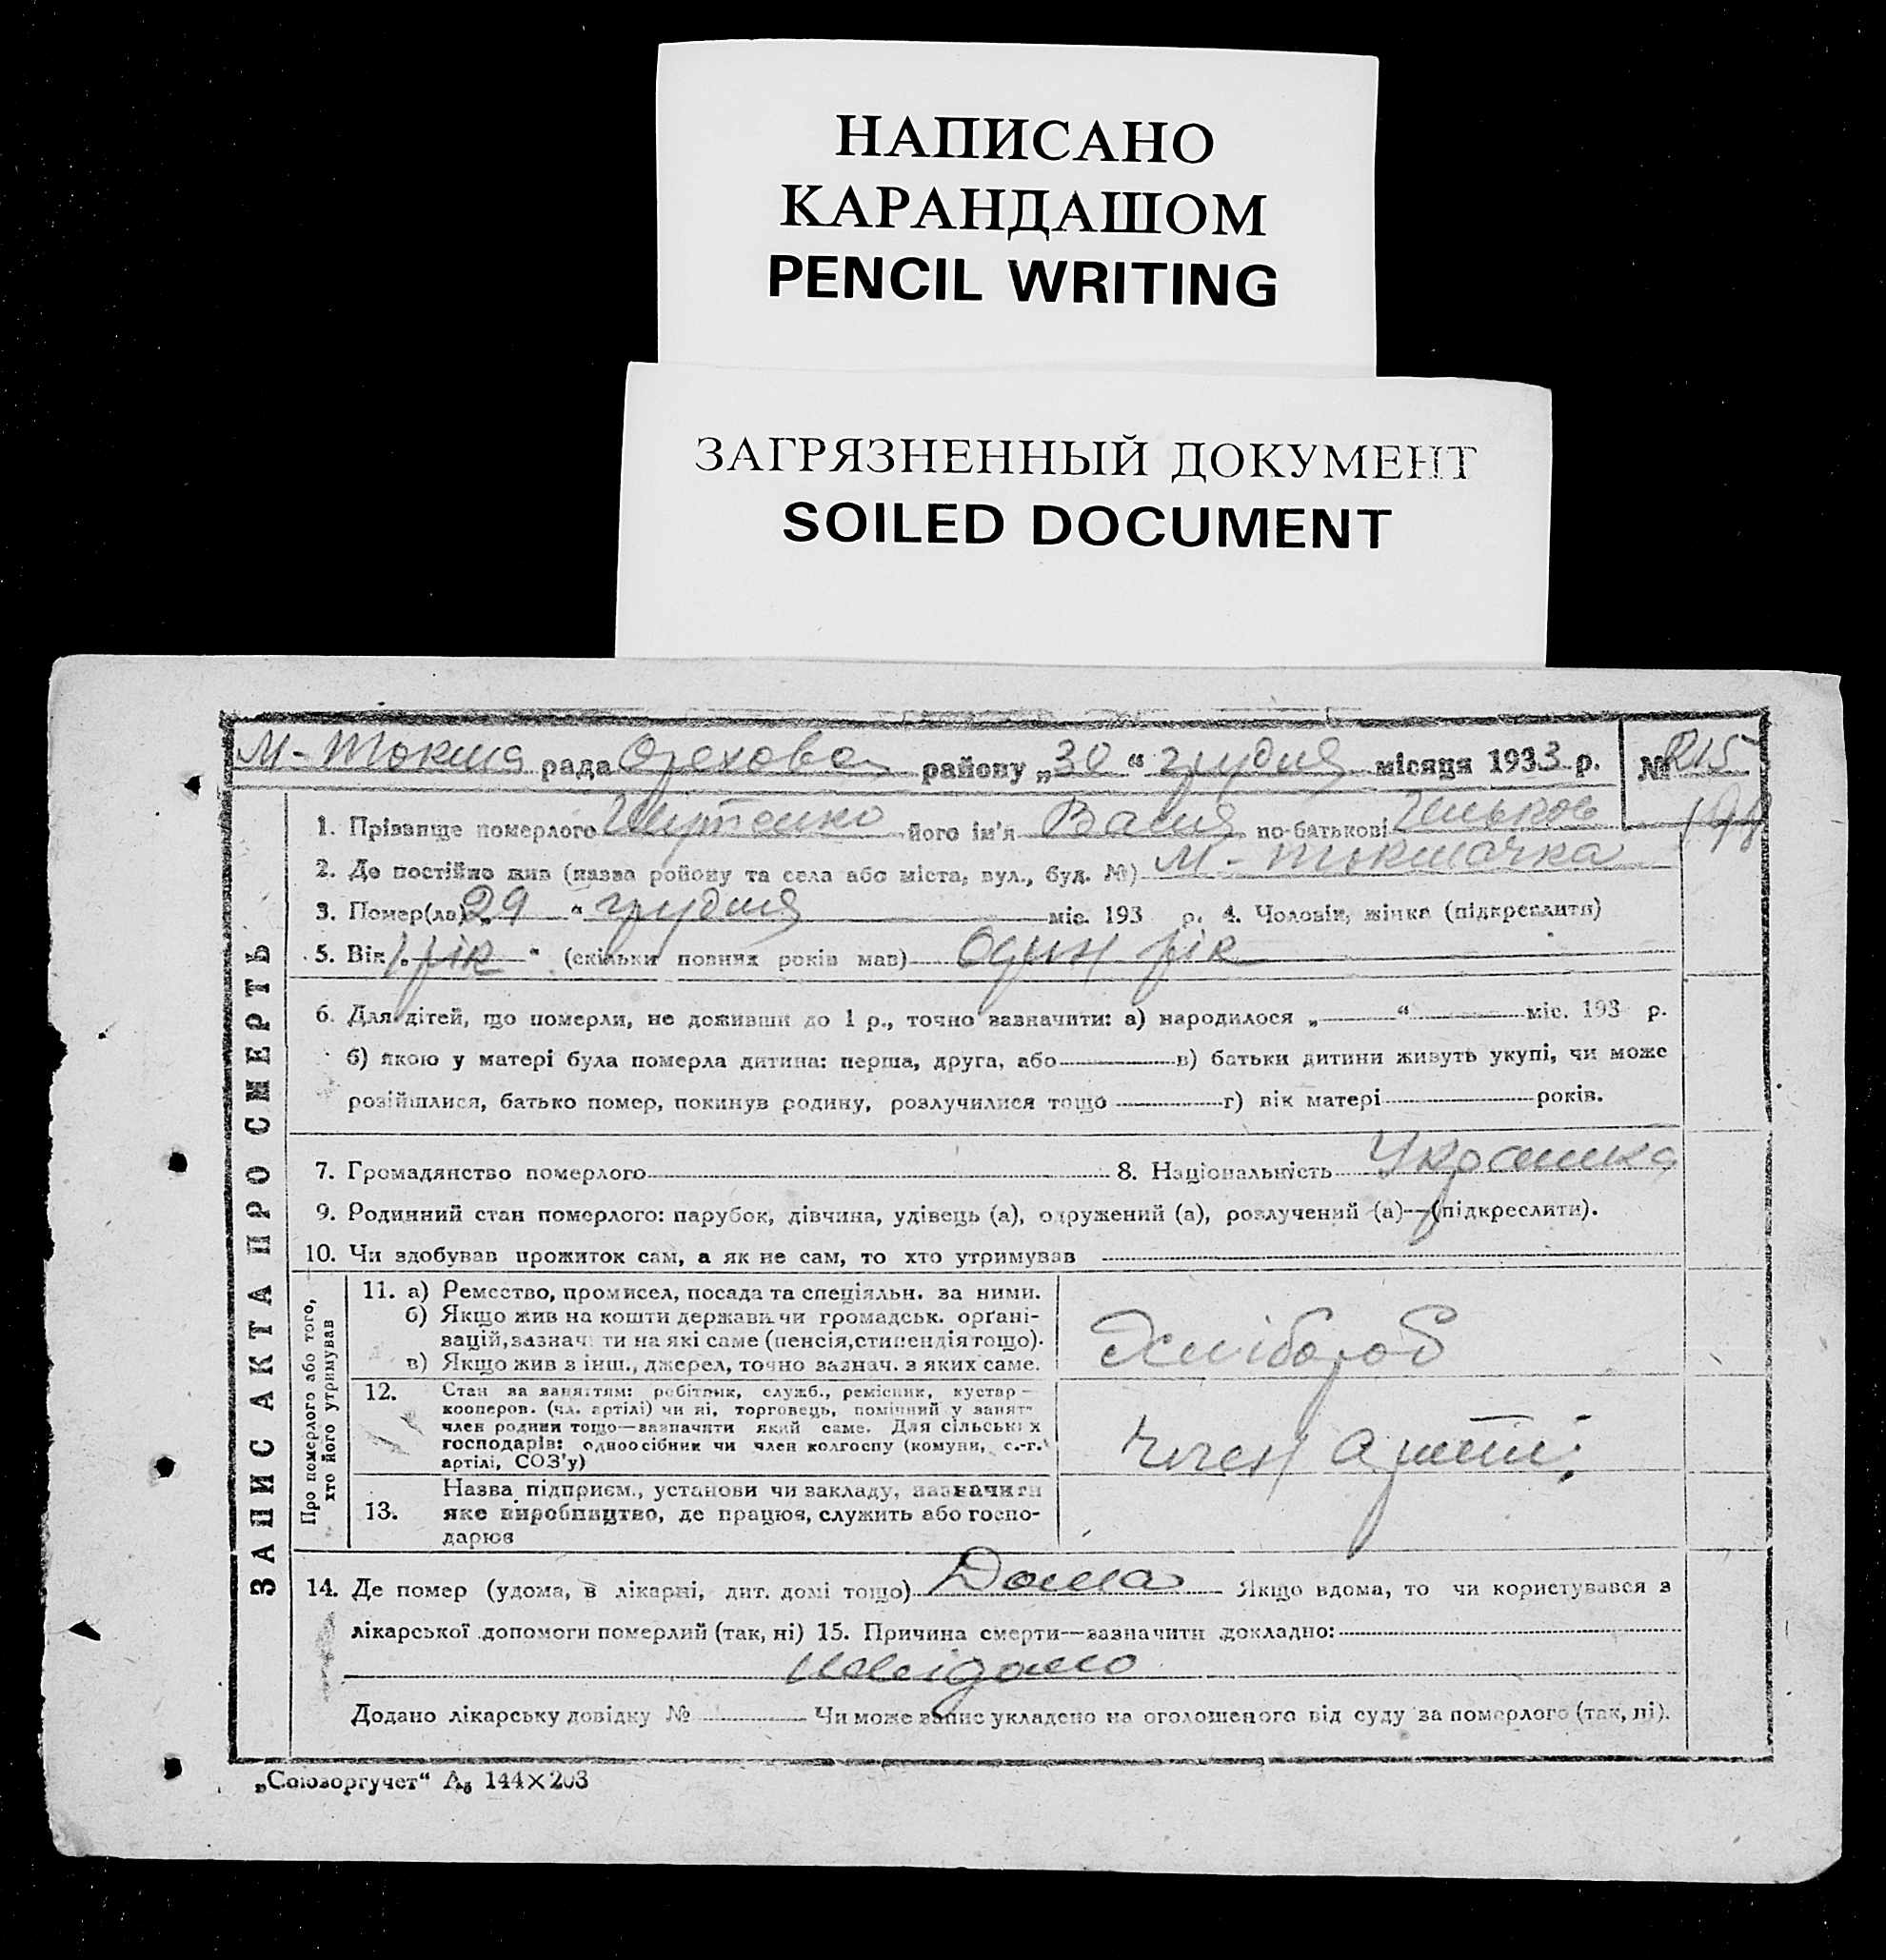 НАПИСАНО
КАРАНДАШОМ
PENCIL WRITING
ЗАГРЯЗНЕННЫЙ ДОКУМЕНТ
SOILED DOCUMENT
М-Токма рада Орехове району „30“ грудня місяця 1933 р. №
1. Прізвище померлого його ім'я Васил по-батькові
2. Де постійно жив (назва району та села або міста, вул., буд. №) М-Токмачка
3. Помер(ла) „29“ грудня міс. 193 р. 4. Чоловік, жінка (підкреслити)
5. Вік 1 рік “ (скільки повних років мав) Один рік
6. Для дітей, що померли, не доживши до 1 р., точно зазначити: а) народилося „ “ міс. 193 р.
б) якою у матері була померла дитина: перша, друга, або в) батьки дитини живуть укупі, чи може
розійшлися, батько помер, покинув родину, розлучилися тощо г) вік матері років.
7. Громадянство померлого 8. Національність
9. Родинний стан померлого: парубок, дівчина, удівець (а), одружений (а), розлучений (а)—(підкреслити).
10. Чи здобував прожиток сам, а як не сам, то хто утримував
Про померлого або того,
хто його утримував
11. а) Ремество, промисел, посада та спеціяльн. за ними.
б) Якщо жив на кошти держави чи громадськ. органі-
зацій, зазначити на які саме (пенсія, стипендія тощо).
в) Якщо жив з інш., джерел, точно зазнач. з яких саме.
Хлібороб
12. Стан за заняттям: робітник, служб., ремісник, кустар—
кооперов. (чл. артілі) чи ні, торговець, помічний у занят—
член родини тощо—зазначити який саме. Для сільських
господарів: одноосібник чи член колгоспу (комуни, с.-г.
артілі, СОЗ'у)
член артілі
13. Назва підприєм., установи чи закладу, зазначити
яке виробництво, де працює, служить або госпо-
дарює
14. Де помер (удома, в лікарні, дит. домі тощо) Дома Якщо вдома, то чи користувався з
лікарської допомоги померлий (так, ні) 15. Причина смерти—зазначити докладно:
невідомо
Додано лікарську довідку № Чи може запис укладено на оголошеного від суду за померлого (так, ні).
ЗАПИС АКТА ПРО СМЕРТЬ
„Союзоргучет“ А₅ 144×203